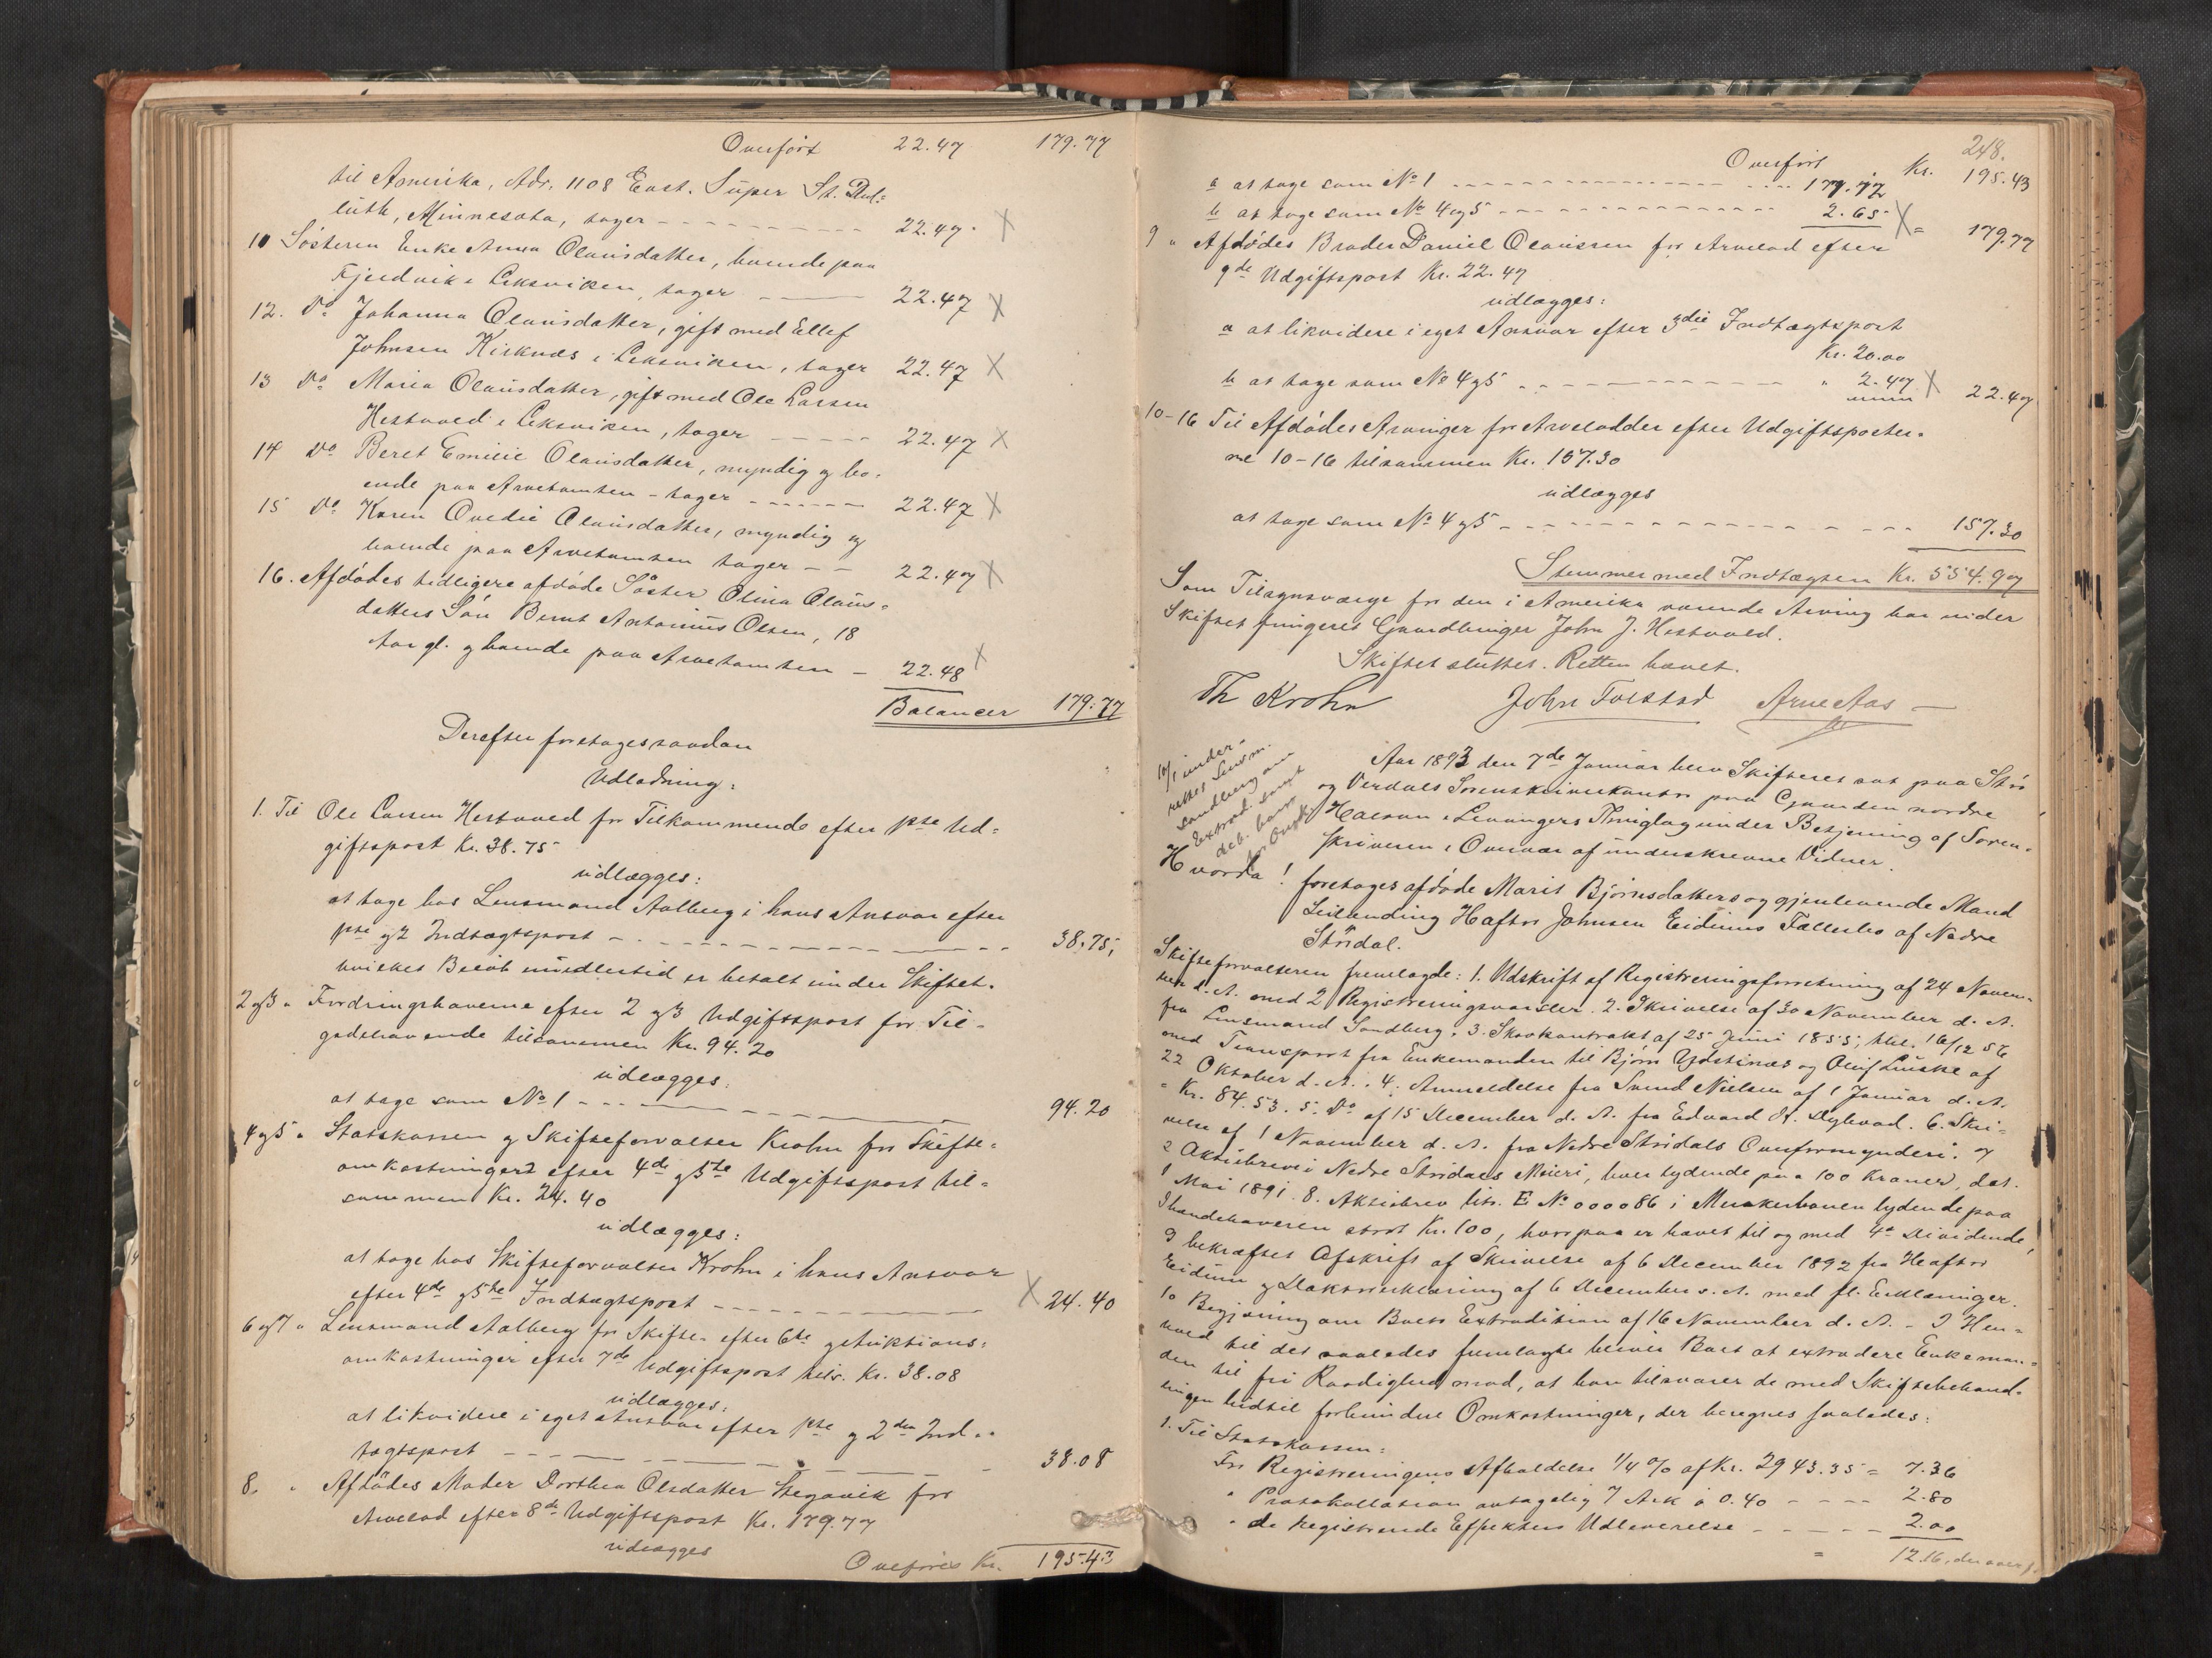 Overført 22.47 179.77
til Amerika, Adr. 1108 East. Super St. Dul=
luth, Minnesota, tager - - - 22.47. X
10 Søsteren Enke Anna Olausdatter, boende paa
Fjerdvik i Leksviken, tager - 22.47 X
12. Do Johanna Olausdatter, gift med Ellef
Johnsen Kirknæs i Leksviken, tager 22.47 X
13 Do Maria Olausdatter, gift med Ole Larsen
Hestvold i Leksviken, tager - - - 22.47 X
14 Do Beret Emilie Olausdatter, myndig og bo-
ende paa Arvetomten - tager - - - 22.47 X
15 Do Karen Ovedie Olausdatter, myndig og
boende paa Arvetomten tager - - 22.47 X
16. Afdødes tidligere afdøde Søster Olina Olaus=
datters Søn Bernt Antonius Olsen, 18
Aar gl. og boende paa Arvetomten - 22.48 X
Balancer 179.77
Derefter foretoges saadan
Udlodning:
1. Til Ole Larsen Hestvold for Tilkommende efter 1ste Ud=
giftspost Kr. 38.75
udlægges:
at tage hos Lensmand Aalberg i hans Ansvar efter
1ste og 2 Indtægtspost - - - 38.75,
hvilket Beløb imidlertid er betalt under Skiftet.
2 og 3 " Fordringshaverne efter 2 og 3 Udgiftspost for Til-
godehavende tilsammen Kr. 94.20
udlægges:
at tage som No 1 - - - 94.20
4 og 5 " Statskassen og Skifteforvalter Krohn for Skifte=
omkostninger efter 4de og 5te Udgiftspost til=
sammen Kr. 24.40
udlægges:
at tage hos Skifteforvalter Krohn i hans Ansvar
efter 4de og 5te Indtægtspost - - - X 24.40
6 og 7 " Lensmand Aalberg for Skifte- efter 6te og Auktions=
omkostninger efter 7de Udgiftspost tils. Kr. 38.08
udlægges:
at likvidere i eget Ansvar efter 1ste og 2den Ind=
tægtspost - - - 38.08
8. " Afdødes Moder Dorthea Olsdatter Stegavik for
Arvelod efter 8de Udgiftspost Kr. 179.77
udlægges
Overføres Kr. 195.43
248.
Overført Kr. 195.43
a at tage som No 1 - - - 177.12
b at tage som No 4 og 5 - - - 2.65 X = 179.77
9 " Afdødes Broder Daniel Olaussen for Arvelod efter
9de Udgiftspost Kr. 22.47
udlægges:
a at likvidere i eget Ansvar efter 3die Indtægtspost
Kr. 20.00
b at tage som No 4 og 5 - - - " 2.47 X 22.47
10-16 Til Afdødes Arvinger for Arvelodder efter Udgiftsposter-
ne 10-16 tilsammen Kr. 157.30
udlægges
at tage som No 4 og 5 - - - 157.30
Stemmer med Indtægten Kr. 554.97
Som Tilsynsværge for den i Amerika værende Arving har under
Skiftet fungeret Gaardbruger John J. Hestvold.
Skiftet sluttet. Retten hævet.
Th Krohn John Tolstad Arne Aas
10/1 under-
rettet Lensm.
Sandberg om
Extrad. samt
Aar 1893 den 7de Januar blev Skifteret sat paa Stør
og Verdals Sorenskriverkontor paa Gaarden nordre
Halsan i Levangers Thinglag under Betjening af Soren-
skriveren i Overvær af underskrevne Vidner.
Hvorda! foretoges afdøde Marit Bjørnsdatters og gjenlevende Mand
Leilænding Haftor Johnsen Eidums Fællesbo af Nedre
Stjørdal.
Skifteforvalteren fremlagde: 1. Udskrift af Registreringsforretning af 24 Novem-
ber d. A. med 2 Registreringsvarsler. 2. Skrivelse af 30 November d. A.
fra Lensmand Sandberg. 3. Skovkontrakt af 25 Juni 1855, thl. 16/12 56
med Transport fra Enkemanden til Bjørn Ydstinæs og Oluf Linske af
22 Oktober d. A. 4. Anmeldelse fra Svend Nielsen af 1 Januar d. A.
= Kr. 84.53. 5. Do af 15 December d. A. fra Edvard H. Dybvad. 6. Skri-
velse af 1 November d. A. fra Nedre Stjørdals Overformynderi. 7
2 Aktiebreve i Nedre Stjørdals Meieri, hver lydende paa 100 Kroner, dat.
1 Mai 1891. 8. Aktiebrev litr. E No 000086 i Merakerbanen lydende paa
Ihændehaveren stort Kr. 100, hvorpaa er hævet til og med 4de Dividende,
9 bekræftet Afskrift af Skrivelse af 6 December 1892 fra Haftor
Eidum og Doktorerklæring af 6 December s. A. med fl. Erklæringer.
10 Begjæring om Boets Extradition af 16 November d. A. - I Hen-
hold til det saaledes fremlagte blev Boet at extradere Enkeman-
den til fri Raadighed mod, at han tilsvarer de med Skiftebehand-
lingen hidtil forbundne Omkostninger, der beregnes saaledes:
1. Til Statskassen:
For Registreringens Afholdelse 1/4 % af Kr. 2943.35 = 7.36
" Protokollation antagelig 7 Ark à 0.40 - - - 2.80
" de registrerede Effekters Udleverelse - - - 2.00
= 12.16, der overf.